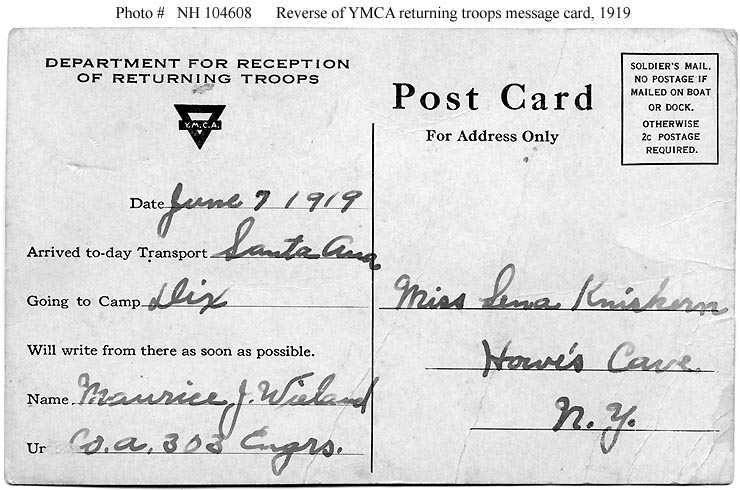 Photo # NH 104608 Reverse of YMCA returning troops message card, 1919
DEPARTMENT FOR RECEPTION
OF RETURNING TROOPS
Y.M.C.A.
Date June 7 1919
Arrived to-day Transport Santa Ana
Going to Camp Dix
Will write from there as soon as possible.
Name Maurice J. Wieland
Ur Co. a, 303 Engrs.
Post Card
For Address Only
SOLDIER'S MAIL.
NO POSTAGE IF
MAILED ON BOAT
OR DOCK.
OTHERWISE
2c POSTAGE
REQUIRED.
Miss Lena Kniskern
Howe's Cave
N.Y.